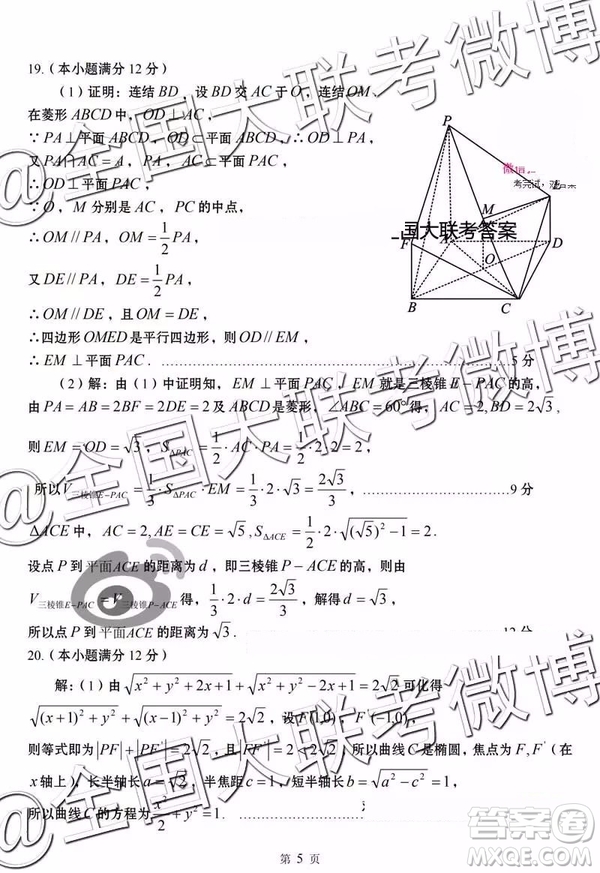 19.（本小题满分12分）
（1）证明：连结BD，设BD交AC于O，连结OM，
在菱形ABCD中，OD⊥AC
∵PA⊥平面ABCD，OD⊂平面ABCD，∴OD⊥PA，
又PA∩AC=A，PA、AC⊂平面PAC，
∴OD⊥平面PAC．
∵O，M分别是AC，PC的中点，
∴OM//PA，OM=\frac{1}{2}PA，
又DE//PA，DE=\frac{1}{2}PA，
∴OM//DE，且OM=DE，
∴四边形OMED是平行四边形，则OD//EM，
∴EM⊥平面PAC．……………………5分
P
M
E
F
A
D
O
B
C
国大联考答案
（2）解：由（1）中证明知，EM⊥平面PAC，EM就是三棱锥E-PAC的高，
由PA=AB=2BF=2DE=2及ABCD是菱形，∠ABC=60°得，AC=2,BD=2\sqrt{3}，
则EM=OD=\sqrt{3}，S_{ΔPAC}=\frac{1}{2}·AC·PA=\frac{1}{2}·2·2=2，
所以V_{三棱锥E-PAC}=\frac{1}{3}·S_{ΔPAC}·EM=\frac{1}{3}·2·\sqrt{3}=\frac{2\sqrt{3}}{3}，……………………9分
ΔACE中，AC=2,AE=CE=\sqrt{5},S_{ΔACE}=\frac{1}{2}·2·\sqrt{(\sqrt{5})^2-1}=2．
设点P到平面ACE的距离为d，即三棱锥P-ACE的高，则由
V_{三棱锥E-PAC}=V_{三棱锥P-ACE}得，\frac{1}{3}·2·d=\frac{2\sqrt{3}}{3}，解得d=\sqrt{3}，
所以点P到平面ACE的距离为\sqrt{3}．……………………12分
20.（本小题满分12分）
解：（1）由\sqrt{x^2+y^2+2x+1}+\sqrt{x^2+y^2-2x+1}=2\sqrt{2}可化得
\sqrt{(x+1)^2+y^2}+\sqrt{(x-1)^2+y^2}=2\sqrt{2}，设F(1,0)，F'(-1,0)，
则等式即为|PF|+|PF'|=2\sqrt{2}，且|FF'|=2<2\sqrt{2}，所以曲线C是椭圆，焦点为F,F'（在
x轴上），长半轴长a=\sqrt{2}，半焦距c=1，短半轴长b=\sqrt{a^2-c^2}=1．
所以曲线C的方程为\frac{x^2}{2}+y^2=1．……………………
第 5 页
@全国大联考微博
@全国大联考微博
@全国大联考微博
答案圈
MXQE.COM